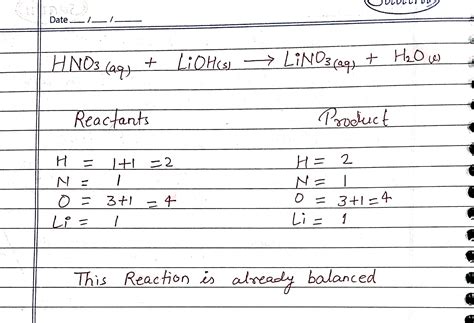 Date __/__/__
HNO₃(aq) + LiOH(s) → LiNO₃(aq) + H₂O(l)
Reactants Product
H = 1+1 = 2 H = 2
N = 1 N = 1
O = 3+1 = 4 O = 3+1 = 4
Li = 1 Li = 1
This Reaction is already balanced